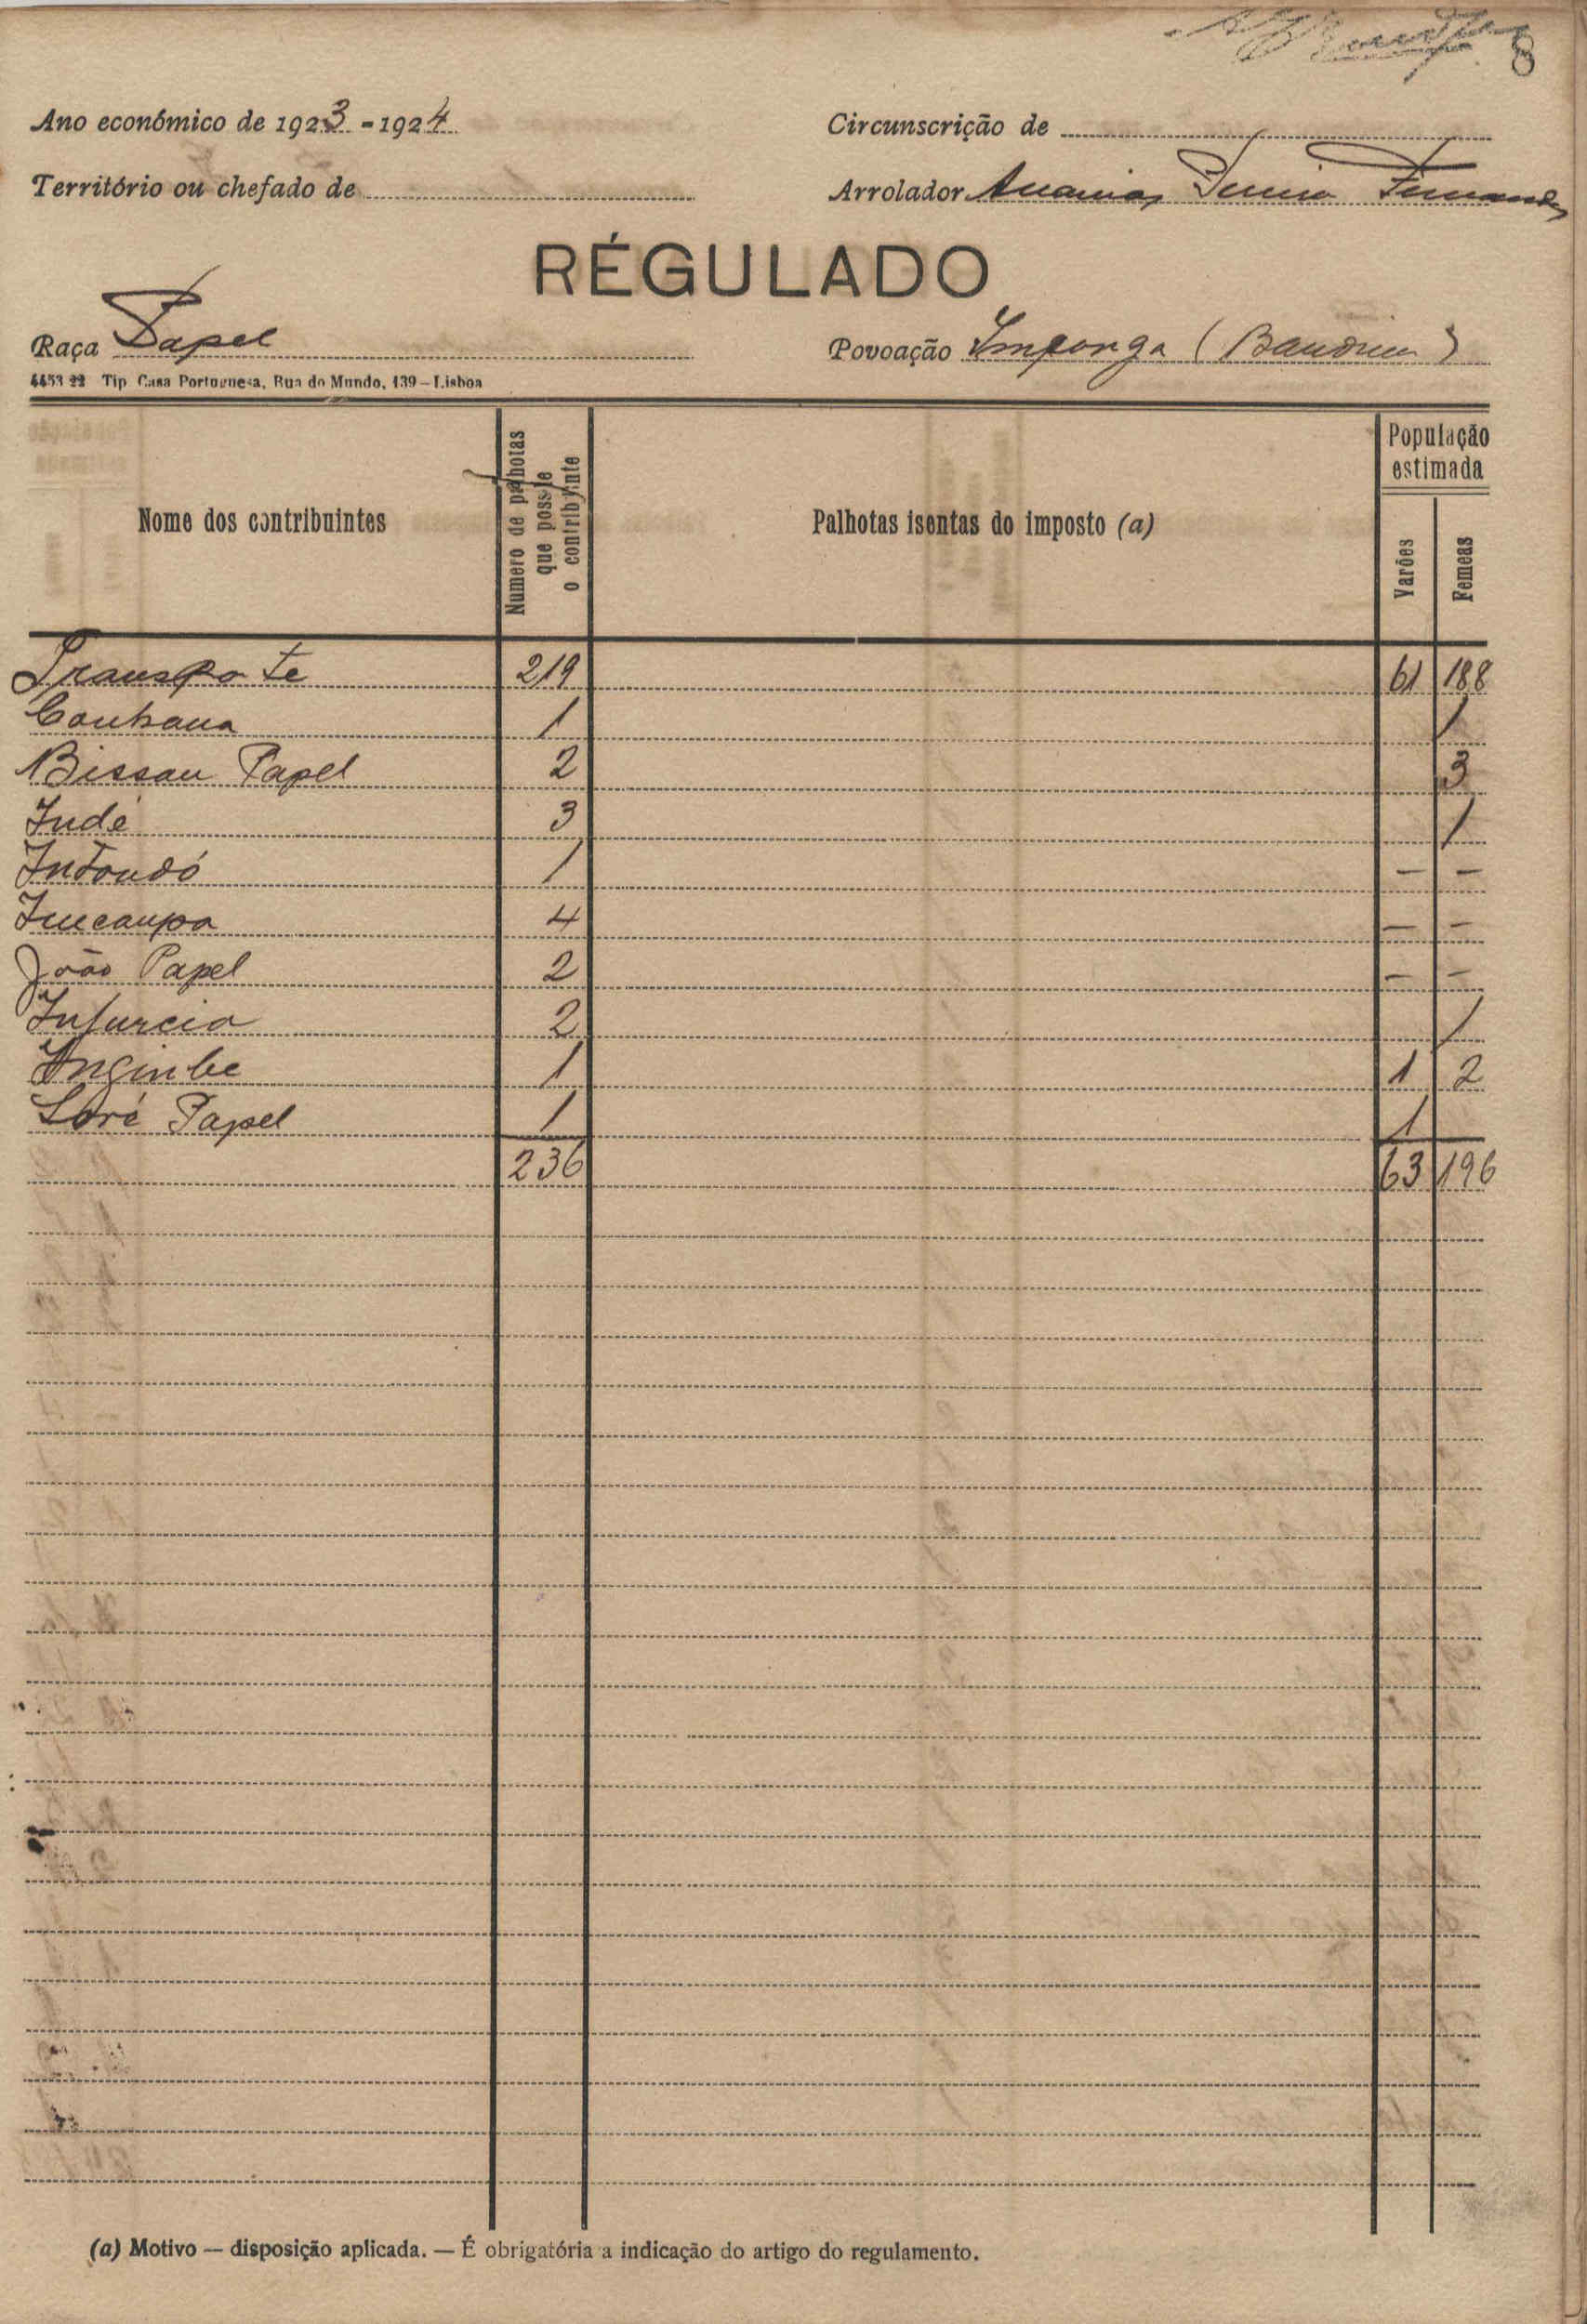 8
Ano económico de 1923-1924 Circunscrição de
Território ou chefado de Arrolador Ananias
RÉGULADO
Raça Papel Povoação Imponga (Bandim)
4453 22 Tip Casa Portuguesa, Rua do Mundo, 139-Lisboa
Nome dos contribuintes Numero de palhotas que possue o contribuinte Palhotas isentas do imposto (a) População estimada Varões Femeas
Transpo te 219 61 188
1 1
Bissau Papel 2 3
Indé 3 1
1 - -
4 - -
João Papel 2 - -
2 1
1 1 2
Papel 1 1
236 63 196
(a) Motivo — disposição aplicada. — É obrigatória a indicação do artigo do regulamento.